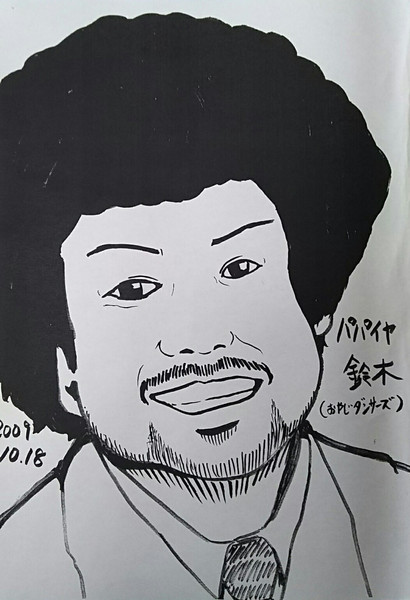 パパイヤ
鈴木
(おやじダンサーズ)
2009
10.18